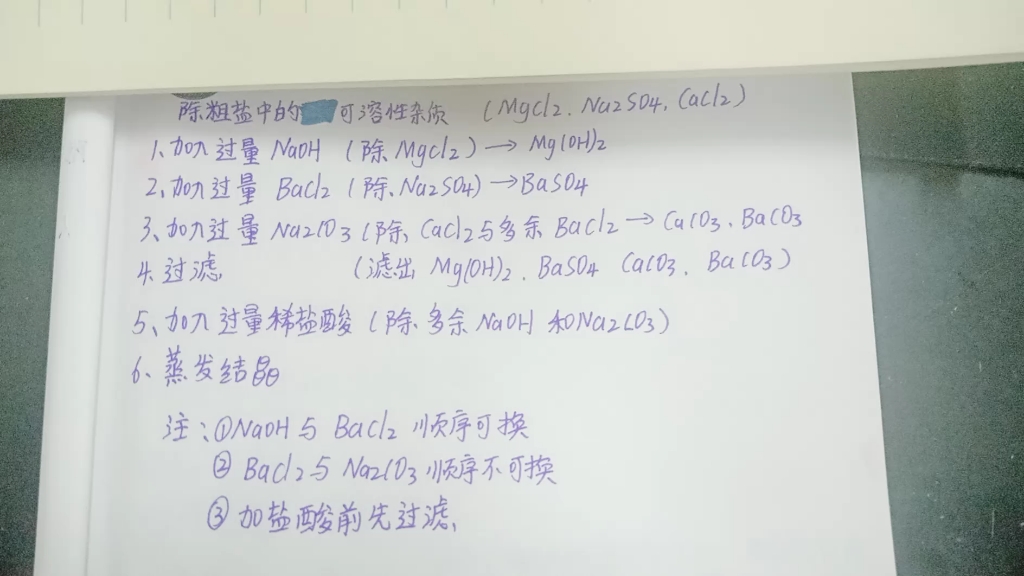 除粗盐中的可溶性杂质 (MgCl2、Na2SO4、CaCl2)
1、加入过量 NaOH (除 MgCl2) → Mg(OH)2
2、加入过量 BaCl2 (除、Na2SO4) → BaSO4
3、加入过量 Na2CO3 (除、CaCl2与多余 BaCl2 → CaCO3、BaCO3
4、过滤 (滤出 Mg(OH)2、BaSO4 CaCO3、BaCO3)
5、加入过量稀盐酸 (除、多余 NaOH 和Na2CO3)
6、蒸发结晶
注:①NaOH与 BaCl2 顺序可换
② BaCl2与 Na2CO3 顺序不可换
③ 加盐酸前先过滤、